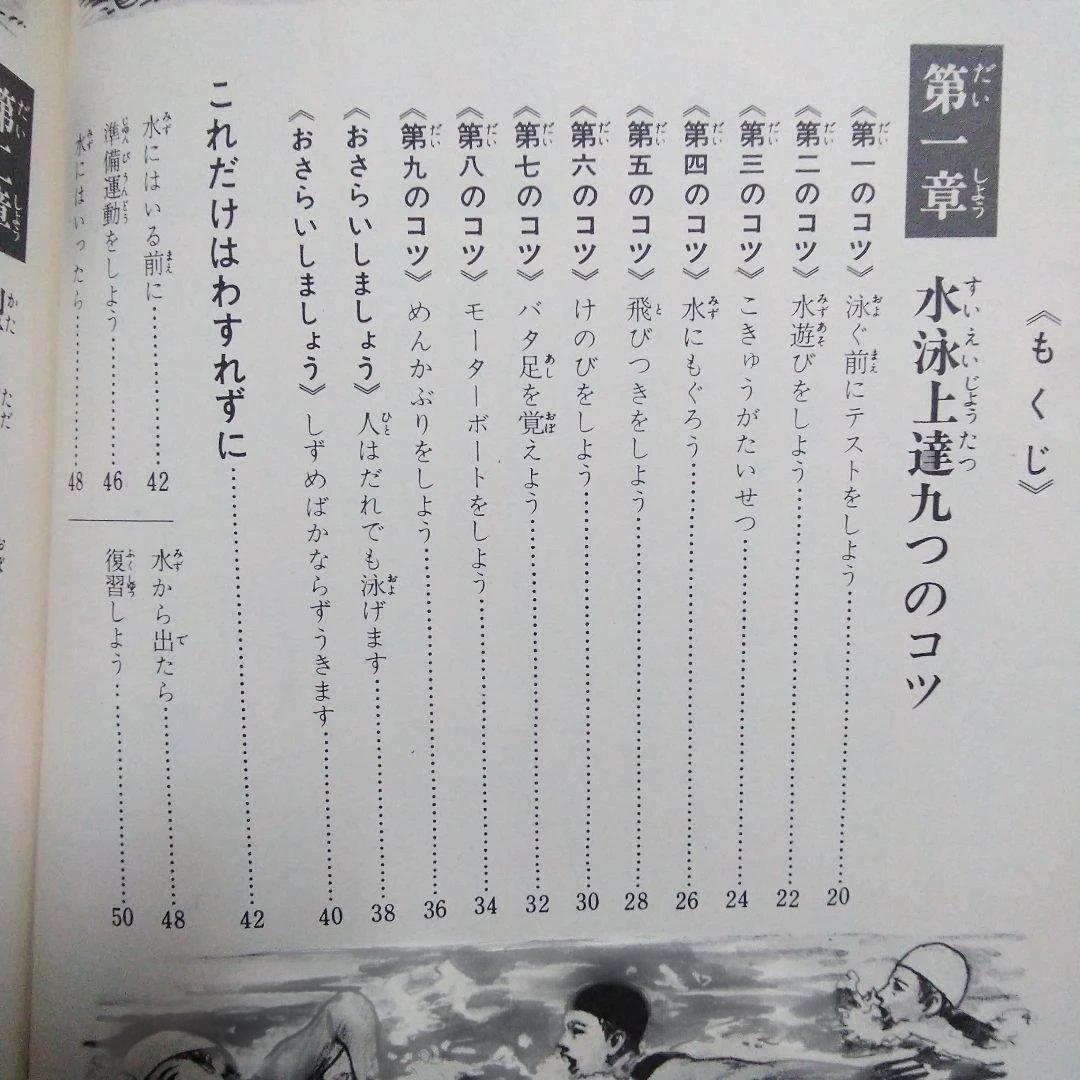 《もくじ》
第一章 水泳上達九つのコツ
《第一のコツ》泳ぐ前にテストをしよう……20
《第二のコツ》水遊びをしよう……22
《第三のコツ》こきゅうがたいせつ……24
《第四のコツ》水にもぐろう……26
《第五のコツ》飛びつきをしよう……28
《第六のコツ》けのびをしよう……30
《第七のコツ》バタ足を覚えよう……32
《第八のコツ》モーターボートをしよう……34
《第九のコツ》めんかぶりをしよう……36
《おさらいしましょう》人はだれでも泳げます……38
《おさらいしましょう》しずめばかならずうきます……40
これだけはわすれずに……42
水にはいる前に……42
準備運動をしよう……46
水にはいったら……48
水から出たら……48
復習しよう……50
第二章